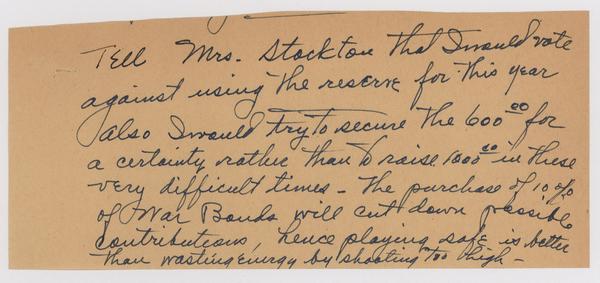 Tell Mrs. Stockton that I would vote
against using the reserve for this year
also I would try to secure the 600⁰⁰ for
a certainty rather than to raise 1000⁰⁰ in these
very difficult times - The purchase of 10%
of War Bonds will cut down possible
contributions, hence playing safe is better
than wasting energy by shooting too high -